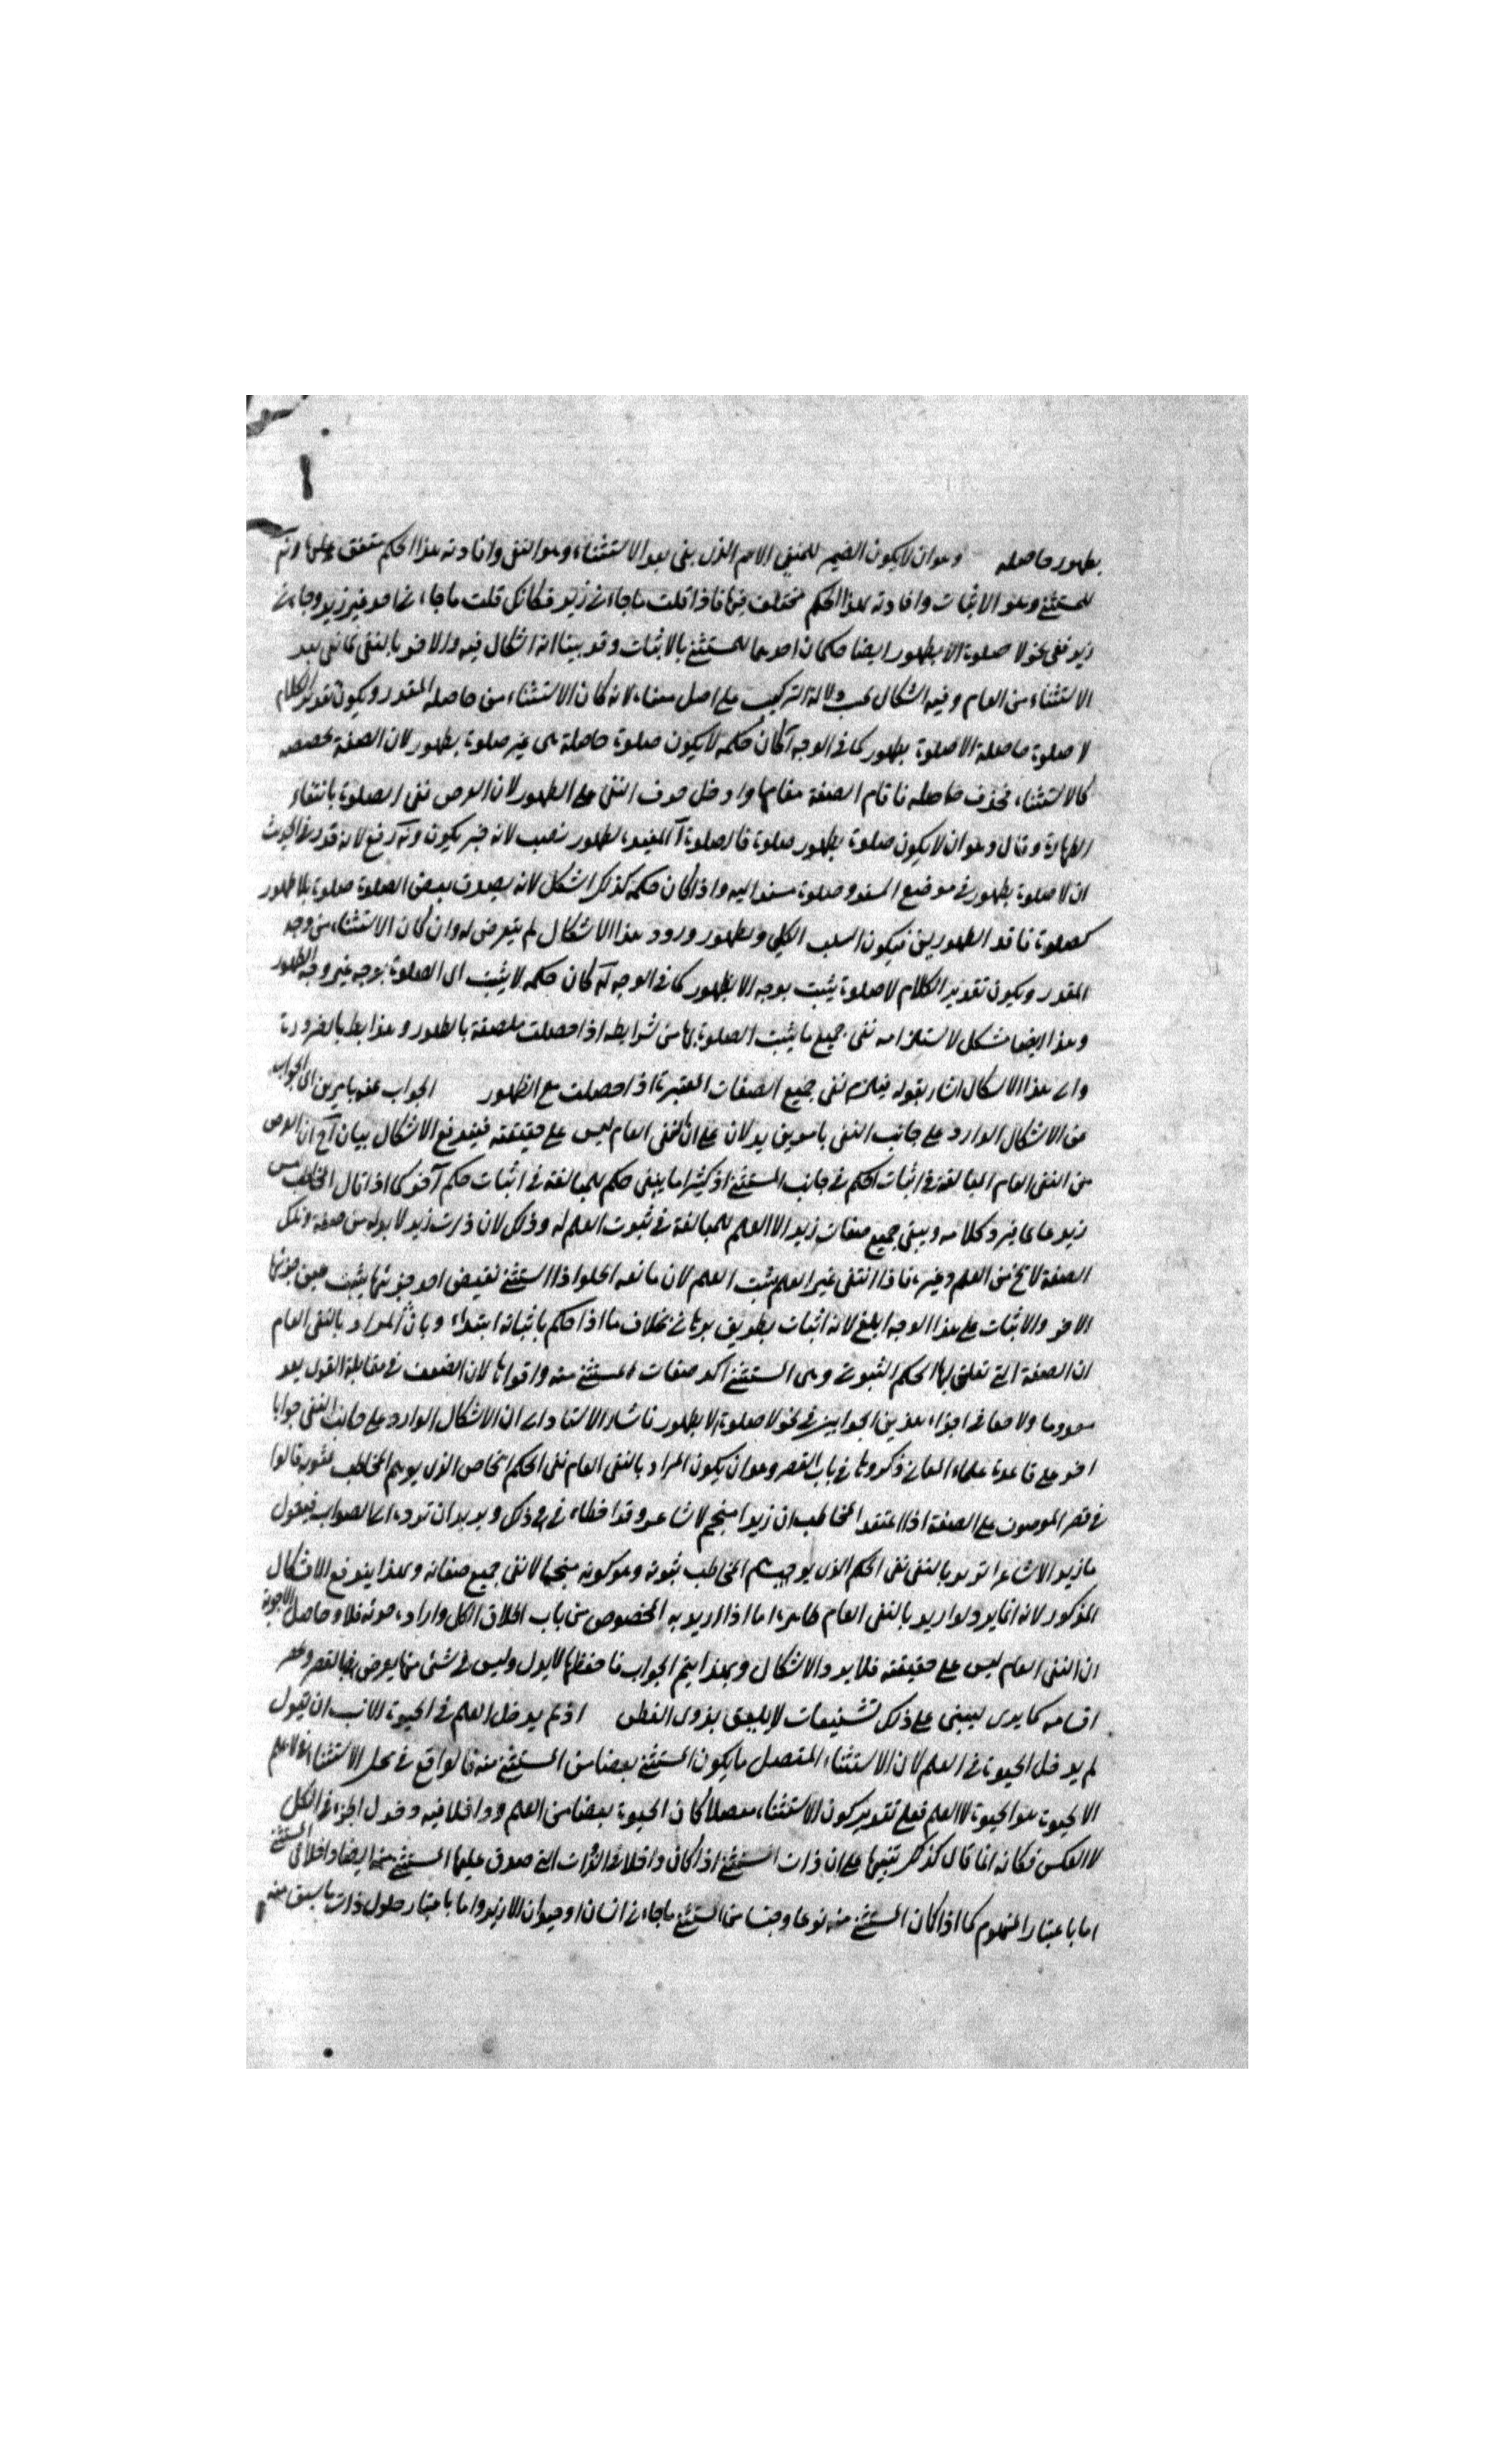 بطهور حاصله وهو ان لا يكون الضمير للمنفي الاعم الذى بقى بعد الاستثناء وهو النفى وافادته هذا الحكم متفق عليها وانه
للمستثنى وهو الاثبات وافادته هذا الحكم مختلف فيها فاذا قلت ما جاءنى زيد فكانك قلت ما جاءنى احد غير زيد وجاءنى
زيد ففى نحو لا صلوة الا بطهور ايضا حكمان احدهما للمستثنى بالاثبات وقد بينا انه اشكال فيه والاخر بالنفى لما بقى بعد
الاستثناء من العام وفيه اشكال بحسب دلالة التركيب على اصل معناه لانه كان الاستثناء من حاصله المقدر ويكون تقدير الكلام
لا صلوة حاصلة الا صلوة بطهور كما فى الوجه آ كان حكمه لا يكون صلوة حاصلة هى غير صلوة بطهور لان الصفة مخصصه
كالاستثناء فحذف حاصله فاقام الصفة مقامها وادخل حرف النفى على الطهور لان الغرض نفى الصلوة بانتفاء
الطهارة وقال وهو ان لا يكون صلوة بطهور صلوة فالصلوة آ المقيدة بطهور نصب لانه خبر يكون و رفع لانه قدر فى الحديث
ان لا صلوة بطهور فى موضع المسند وصلوة مسندا اليه واذا كان حكمه كذلك اشكل لانه يصدق بعض الصلوة صلوة بلا طهور
كصلوة فاقد الطهورين فيكون السلب الكلي ولظهور ورود هذا الاشكال لم يتعرض له وان كان الاستثناء من وجه
المقدر ويكون تقدير الكلام لا صلوة يثبت بوجه الا بطهور كما فى الوجه كان حكمه لا يثبت اى الصلوة بوجه غير وجه الطهور
وهذا ايضا مشكل لاستلزامه نفى جميع ما يثبت الصلوة بها من شرايطه اذا حصلت ملصقة بالطهور وهذا بط بالضرورة
والى هذا الاشكال اشار بقوله فيلزم نفى جميع الصفات المعتبرة اذا حصلت مع الطهور الجواب عنه بامرين اى الجواب
عن الاشكال الوارد على جانب النفى بامرين يدلان على ان النفى العام ليس على حقيقته فيندفع الاشكال بيان ان الغرض
من النفى العام المبالغة فى اثبات الحكم فى جانب المستثنى اذ كثيرا ما ينفى حكم للمبالغة فى اثبات حكم آخر كما اذا قال المخاطب ليس
زيد عالما فيرد كلامه وينفى جميع صفات زيد الا العلم للمبالغة فى ثبوت العلم له وذلك لان ذات زيد لا بد له من صفة وتلك
الصفة لا تخ من العلم وغيره فاذا انتفى غير العلم يثبت العلم لان مانعة الخلو اذا استثنى نقيض احد جزئيها يثبت عين جزئها
الاخر والاثبات على هذا الوجه ابلغ لانه اثبات بطريق برهانى بخلاف ما اذا حكم باثباته ابتداء وبان المراد بالنفى العام
ان الصفة التى تعلق بها الحكم الثبوتى وهى المستثنى اكد صفات المستثنى منه واقواها لان الضعف فى مقابلة القول يعد
معدوما ولا خفا فى اجراء هذين الجوابين فى نحو لا صلوة الا بطهور فاشار الاستاد الى ان الاشكال الوارد على جانب النفى جوابا
اخر على قاعدة علماء المعانى ذكروها فى باب القصر وهو ان يكون المراد بالنفى العام نفى الحكم الخاص الذى يوهم المخاطب ثبوته قالوا
فى قصر الموصوف على الصفة اذا اعتقد المخاطب ان زيدا منجم لا شاعر وقد اخطاء فى ذلك ويريد ان ترده الى الصواب فيقول
ما زيد الا شاعرا تريد بالنفى نفى الحكم الذى يوهم المخاطب ثبوته وهو كونه منجما لا نفى جميع صفاته وبهذا يندفع الاشكال
المذكور لانه انما يرد لو اريد بالنفى العام ظاهره اما اذا اريد به الخصوص من باب اطلاق الكل وارادة جزئه فلا وحاصل الاجوبة
ان النفى العام ليس على حقيقته فلا يرد الاشكال وبهذا يتم الجواب فاحفظها لايدل وليس فى شئ مما يعرض بها القصر وحصر
اقسامه كما يدى ليبنى على ذلك تشنيعات لا يليق بذوى الفطن اذ لم يدخل العلم فى الحيوة الانسب ان يقول
لم يدخل الحيوة فى العلم لان الاستثناء المتصل ما يكون المستثنى بعضا من المستثنى منه فالواقع فى محل الاستثناء لا علم
الا بحيوة هو الحيوة لا العلم فعلى تقدير كون الاستثناء متصلا كان الحيوة بعضا من العلم وداخلا فيه دخول الجزء فى الكل
لا العكس فكانه انما قال كذلك تنبيها على ان ذات المستثنى اذا كان داخلا فى الذات التى صدق عليها المستثنى منه ايضا داخلا فى المستثنى
اما باعتبار المفهوم كما اذا كان المستثنى منه نوعا وجنسا من المستثنى ما جاءنى انسان او حيوان الا زيد واما باعتبار حلول ذات ما سبق منه